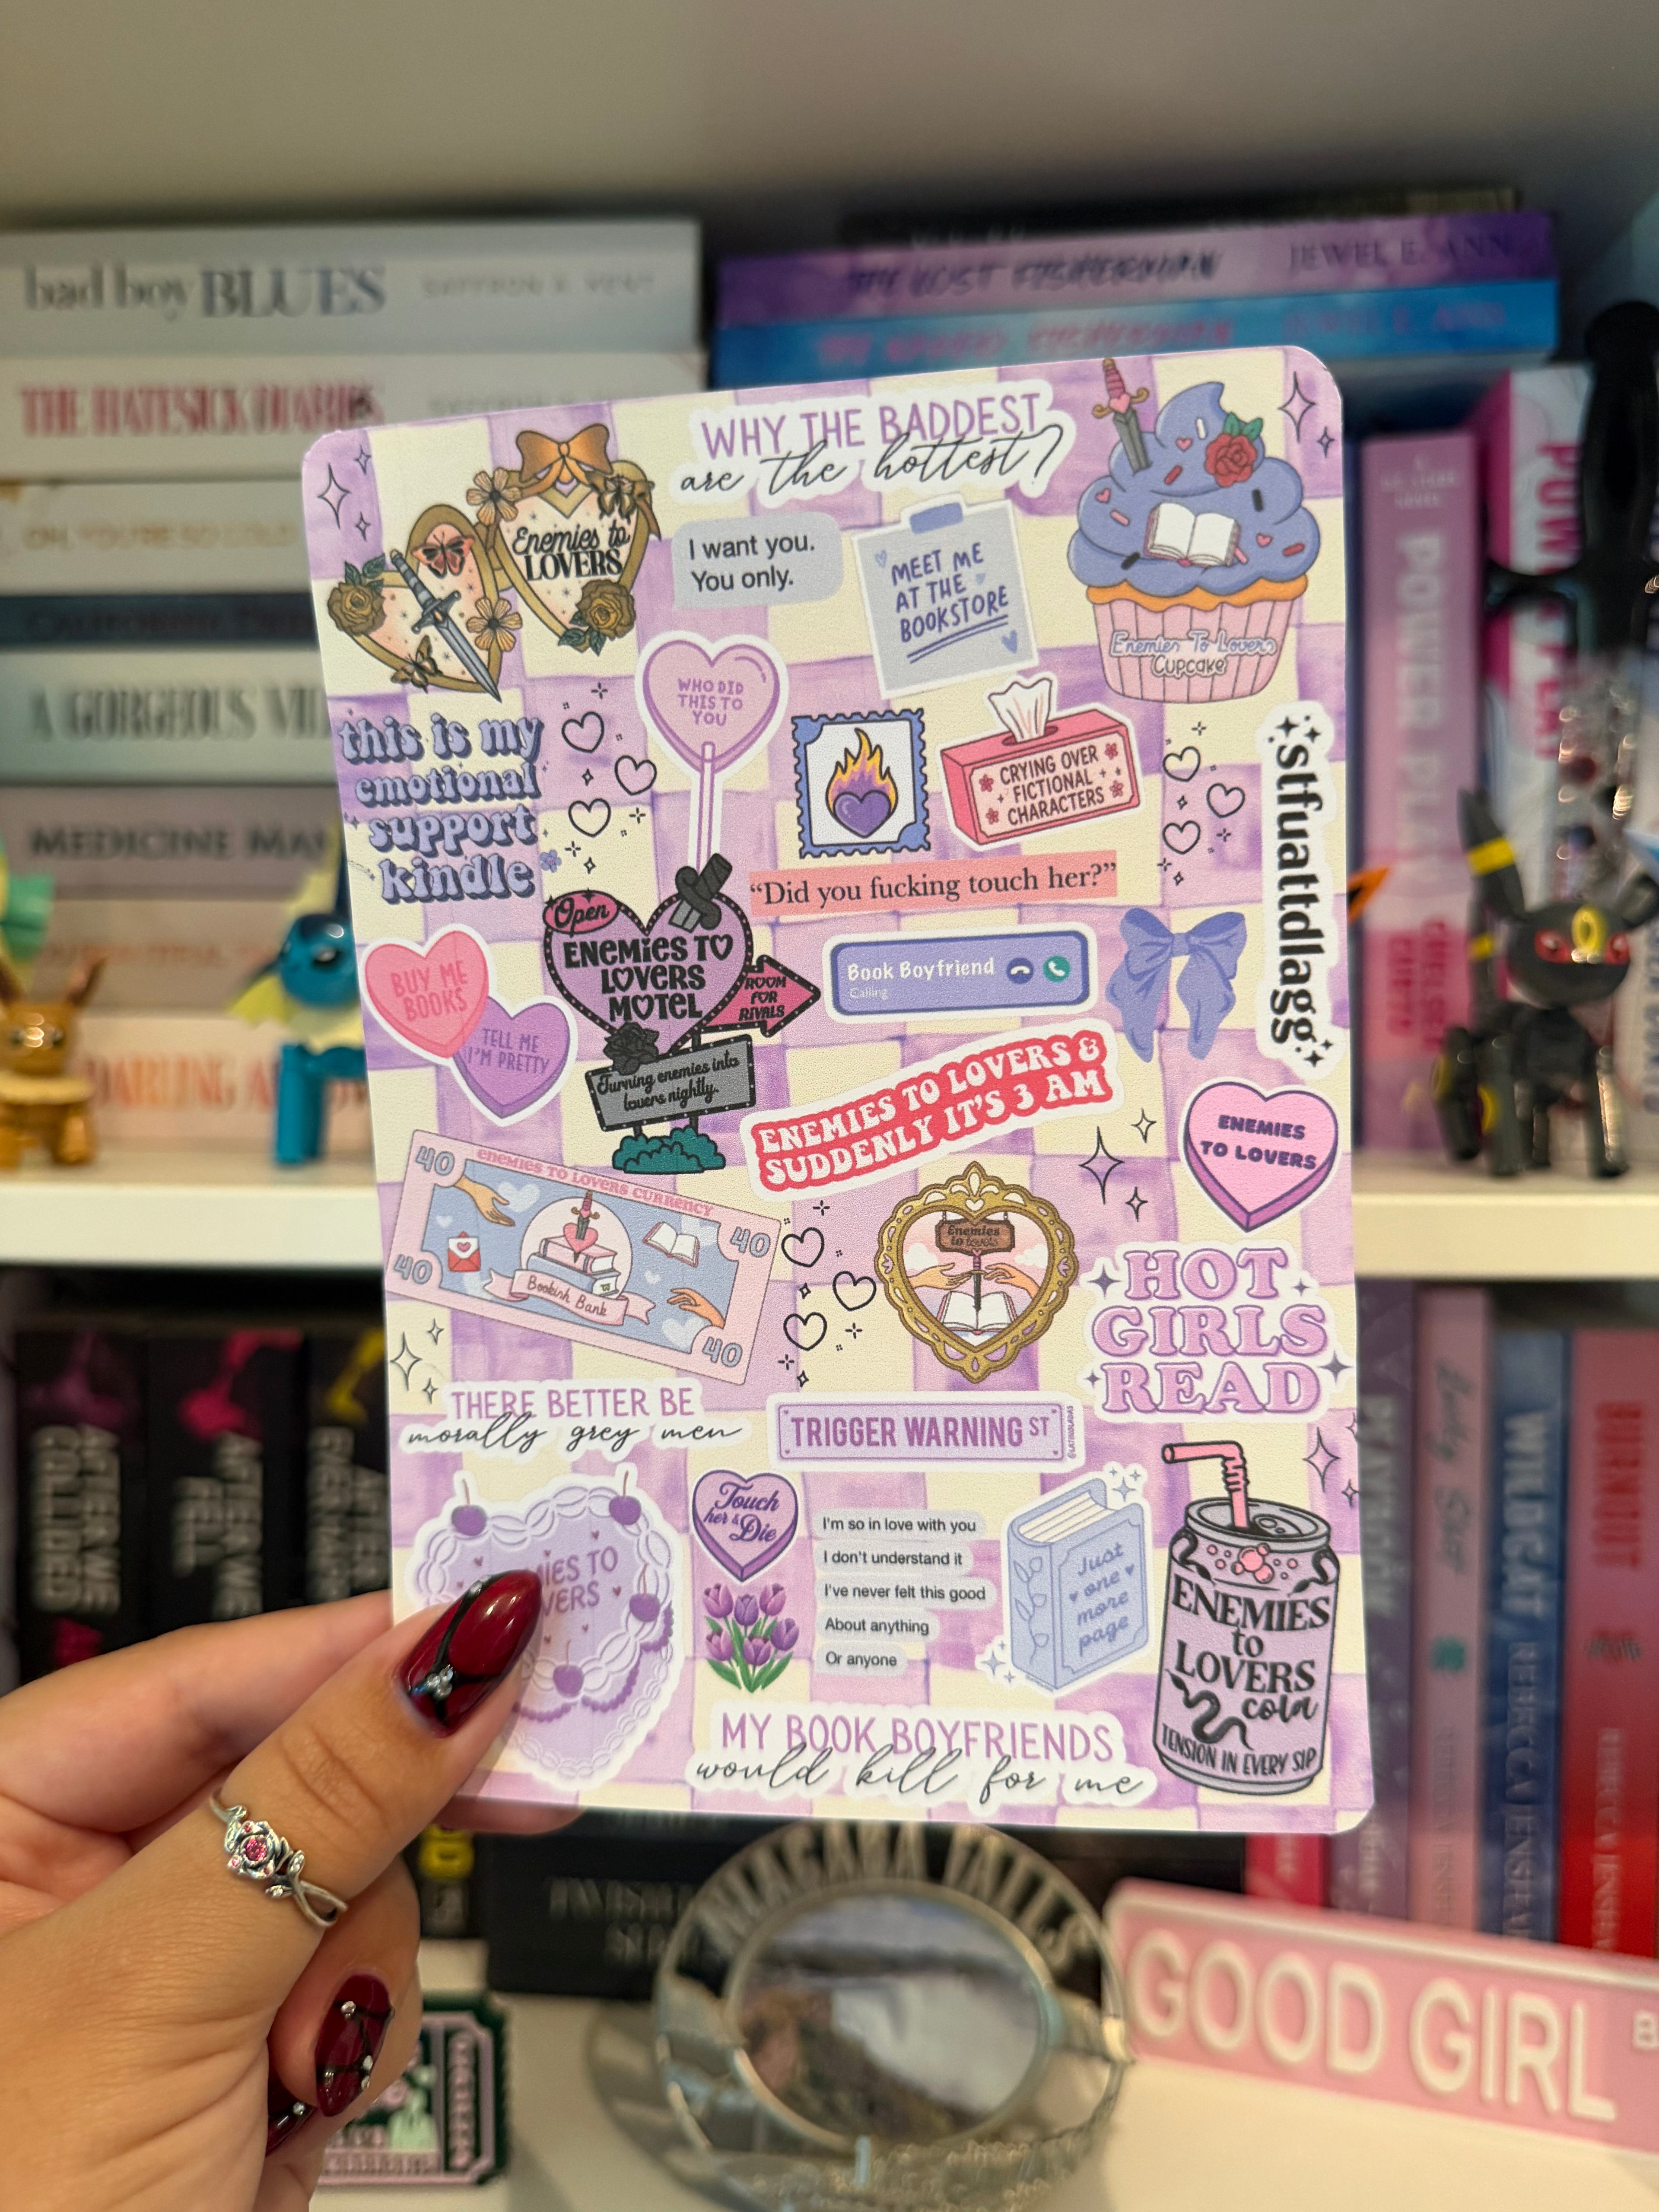 bad boy BLUES
THE HATESICK DIARIES
A GORGEOUS VIL
MEDICINE MA
JEWEL E. ANN
WHY THE BADDEST
are the hottest?
Enemies to
LOVERS
I want you.
You only.
MEET ME
AT THE
BOOKSTORE
Enemies To Lovers
Cupcake
WHO DID
THIS TO
YOU
this is my
emotional
support
kindle
CRYING OVER
FICTIONAL
CHARACTERS
stfuattdlagg
“Did you fucking touch her?”
Open
ENEMIES TO
LOVERS
MOTEL
ROOM
FOR
RIVALS
Turning enemies into
lovers nightly.
Book Boyfriend
Calling
BUY ME
BOOKS
TELL ME
I'M PRETTY
ENEMIES TO LOVERS &
SUDDENLY IT'S 3 AM
ENEMIES
TO LOVERS
40
ENEMIES TO LOVERS CURRENCY
40
40
Bookish Bank
40
Enemies
to lovers
HOT
GIRLS
READ
THERE BETTER BE
morally grey men
TRIGGER WARNING ST
Touch
her &
Die
MIES TO
VERS
I'm so in love with you
I don't understand it
I've never felt this good
About anything
Or anyone
Just
one
more
page
ENEMIES
to
LOVERS
cola
TENSION IN EVERY SIP
MY BOOK BOYFRIENDS
would kill for me
POWER PLAY
WILDCAT
REBECCA JENSHAK
NIAGARA FALLS
GOOD GIRL